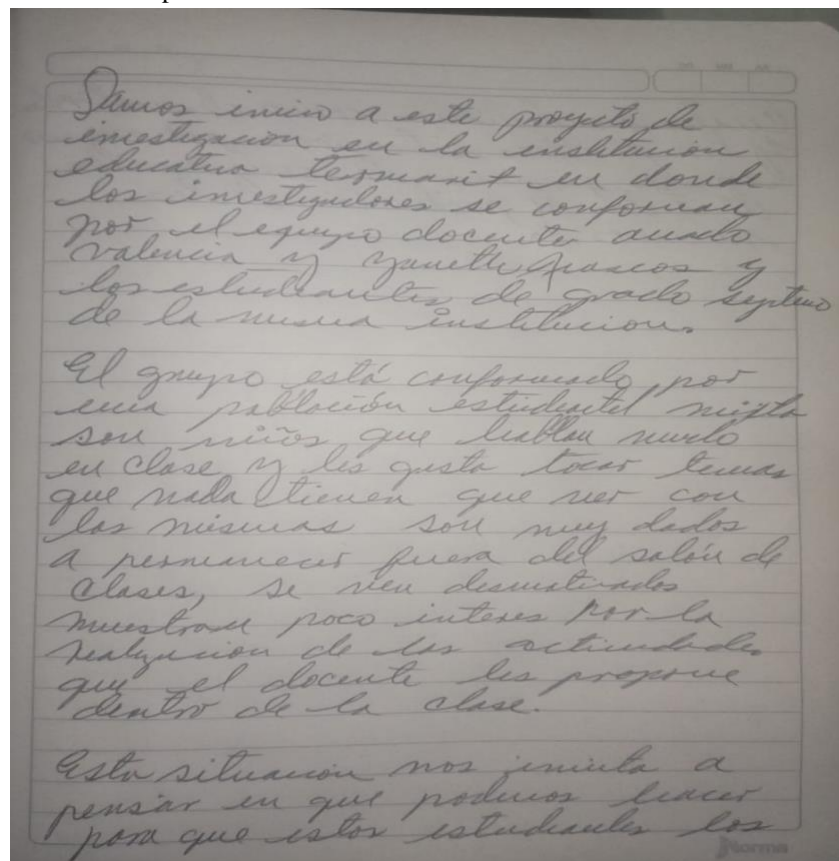 Damos inicio a este proyecto de
investigación en la institución
educativa Termarit en donde
los investigadores se conforman
por el equipo docente
valencia y yaneth y
los estudiantes de grado septimo
de la misma institucion.
El grupo está conformado por
una población estudiantil mixta
son niños que hablan mucho
en clase y les gusta tocar temas
que nada tienen que ver con
las mismas son muy dados
a permanecer fuera del salón de
clases, se ven desmotivados
muestran poco interes por la
realización de las actividades
que el docente les propone
dentro de la clase.
Esta situación nos invita a
pensar en que podemos hacer
para que estos estudiantes los
Norma